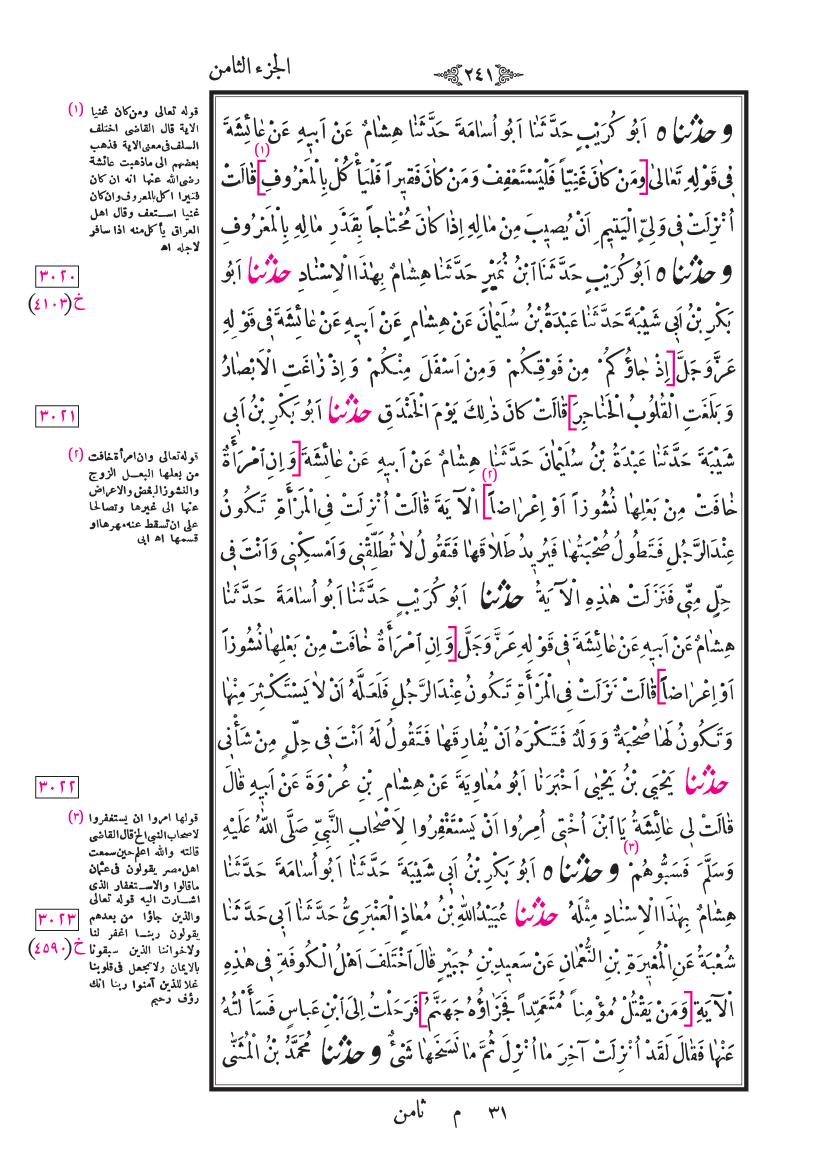 الجزء الثامن
٢٤١
و حدثناه اَبُو كُرَيْبٍ حَدَّثَنَا اَبُو اُسَامَةَ حَدَّثَنَا هِشَامٌ عَنْ اَبِيهِ عَنْ عَائِشَةَ
فِى قَوْلِهِ تَعَالىٰ [وَمَنْ كَانَ غَنِيّاً فَلْيَسْتَعْفِفْ وَمَنْ كَانَ فَقِيراً فَلْيَأْكُلْ بِالْمَعْرُوفِ] (١) قَالَتْ
اُنْزِلَتْ فِى وَلِىِّ الْيَتِيمِ اَنْ يُصِيبَ مِنْ مَالِهِ اِذَا كَانَ مُحْتَاجاً بِقَدْرِ مَالِهِ بِالْمَعْرُوفِ
و حدثناه اَبُو كُرَيْبٍ حَدَّثَنَا ابْنُ نُمَيْرٍ حَدَّثَنَا هِشَامٌ بِهٰذَا الْاِسْنَادِ حدثنا اَبُو
بَكْرِ بْنُ اَبِى شَيْبَةَ حَدَّثَنَا عَبْدَةُ بْنُ سُلَيْمَانَ عَنْ هِشَامٍ عَنْ اَبِيهِ عَنْ عَائِشَةَ فِى قَوْلِهِ
عَزَّ وَجَلَّ [اِذْ جَاؤُكُمْ مِنْ فَوْقِكُمْ وَمِنْ اَسْفَلَ مِنْكُمْ وَاِذْ زَاغَتِ الْاَبْصَارُ
وَبَلَغَتِ الْقُلُوبُ الْحَنَاجِرَ] قَالَتْ كَانَ ذٰلِكَ يَوْمَ الْخَنْدَقِ حدثنا اَبُو بَكْرِ بْنُ اَبِى
شَيْبَةَ حَدَّثَنَا عَبْدَةُ بْنُ سُلَيْمَانَ حَدَّثَنَا هِشَامٌ عَنْ اَبِيهِ عَنْ عَائِشَةَ [وَاِنِ امْرَأَةٌ
خَافَتْ مِنْ بَعْلِهَا نُشُوزاً اَوْ اِعْرَاضاً] (٢) الْآيَةَ قَالَتْ اُنْزِلَتْ فِى الْمَرْأَةِ تَكُونُ
عِنْدَ الرَّجُلِ فَتَطُولُ صُحْبَتُهَا فَيُرِيدُ طَلَاقَهَا فَتَقُولُ لَا تُطَلِّقْنِى وَاَمْسِكْنِى وَاَنْتَ فِى
حِلٍّ مِنِّى فَنَزَلَتْ هٰذِهِ الْآيَةُ حدثنا اَبُو كُرَيْبٍ حَدَّثَنَا اَبُو اُسَامَةَ حَدَّثَنَا
هِشَامٌ عَنْ اَبِيهِ عَنْ عَائِشَةَ فِى قَوْلِهِ عَزَّ وَجَلَّ [وَاِنِ امْرَأَةٌ خَافَتْ مِنْ بَعْلِهَا نُشُوزاً
اَوْ اِعْرَاضاً] قَالَتْ نَزَلَتْ فِى الْمَرْأَةِ تَكُونُ عِنْدَ الرَّجُلِ فَلَعَلَّهُ اَنْ لَا يَسْتَكْثِرَ مِنْهَا
وَتَكُونُ لَهَا صُحْبَةٌ وَوَلَدٌ فَتَكْرَهُ اَنْ يُفَارِقَهَا فَتَقُولُ لَهُ اَنْتَ فِى حِلٍّ مِنْ شَأْنِى
حدثنا يَحْيَى بْنُ يَحْيٰى اَخْبَرَنَا اَبُو مُعَاوِيَةَ عَنْ هِشَامِ بْنِ عُرْوَةَ عَنْ اَبِيهِ قَالَ
قَالَتْ لِى عَائِشَةُ يَا ابْنَ اُخْتِى اُمِرُوا اَنْ يَسْتَغْفِرُوا لِاَصْحَابِ النَّبِىِّ صَلَّى اللهُ عَلَيْهِ
وَسَلَّمَ فَسَبُّوهُمْ (٣) و حدثناه اَبُو بَكْرِ بْنُ اَبِى شَيْبَةَ حَدَّثَنَا اَبُو اُسَامَةَ حَدَّثَنَا
هِشَامٌ بِهٰذَا الْاِسْنَادِ مِثْلَهُ حدثنا عُبَيْدُ اللهِ بْنُ مُعَاذٍ الْعَنْبَرِىُّ حَدَّثَنَا اَبِى حَدَّثَنَا
شُعْبَةُ عَنِ الْمُغِيرَةِ بْنِ النُّعْمَانِ عَنْ سَعِيدِ بْنِ جُبَيْرٍ قَالَ اخْتَلَفَ اَهْلُ الْكُوفَةِ فِى هٰذِهِ
الْآيَةِ [وَمَنْ يَقْتُلْ مُؤْمِناً مُتَعَمِّداً فَجَزَاؤُهُ جَهَنَّمُ] فَرَحَلْتُ اِلَى ابْنِ عَبَّاسٍ فَسَأَلْتُهُ
عَنْهَا فَقَالَ لَقَدْ اُنْزِلَتْ آخِرَ مَا اُنْزِلَ ثُمَّ مَا نَسَخَهَا شَىْءٌ و حدثنا مُحَمَّدُ بْنُ الْمُثَنّٰى
(١) قوله تعالى ومن كان غنيا
الاية قال القاضى اختلف
السلف فى معنى الاية فذهب
بعضهم الى ما ذهبت عائشة
رضى الله عنها انه ان كان
فقيرا اكل بالمعروف وان كان
غنيا استعف وقال اهل
العراق يأكل منه اذا سافر
لاجله اه
٣٠٢٠
خ (٤١٠٣)
٣٠٢١
(٢) قوله تعالى وان امرأة خافت
من بعلها البعل الزوج
والنشوز البغض والاعراض
عنها الى غيرها وتصالحا
على ان تسقط عنه مهرها او
قسمها اه ابى
٣٠٢٢
(٣) قولها امروا ان يستغفروا
لاصحاب النبى الخ قال القاضى
قالته والله اعلم حين سمعت
اهل مصر يقولون فى عثمان
ما قالوا والاستغفار الذى
اشارت اليه قوله تعالى
والذين جاؤا من بعدهم
يقولون ربنا اغفر لنا
ولاخواننا الذين سبقونا
بالايمان ولا تجعل فى قلوبنا
غلا للذين آمنوا ربنا انك
رؤف رحيم
٣٠٢٣
خ (٤٥٩٠)
٣١ م ثامن